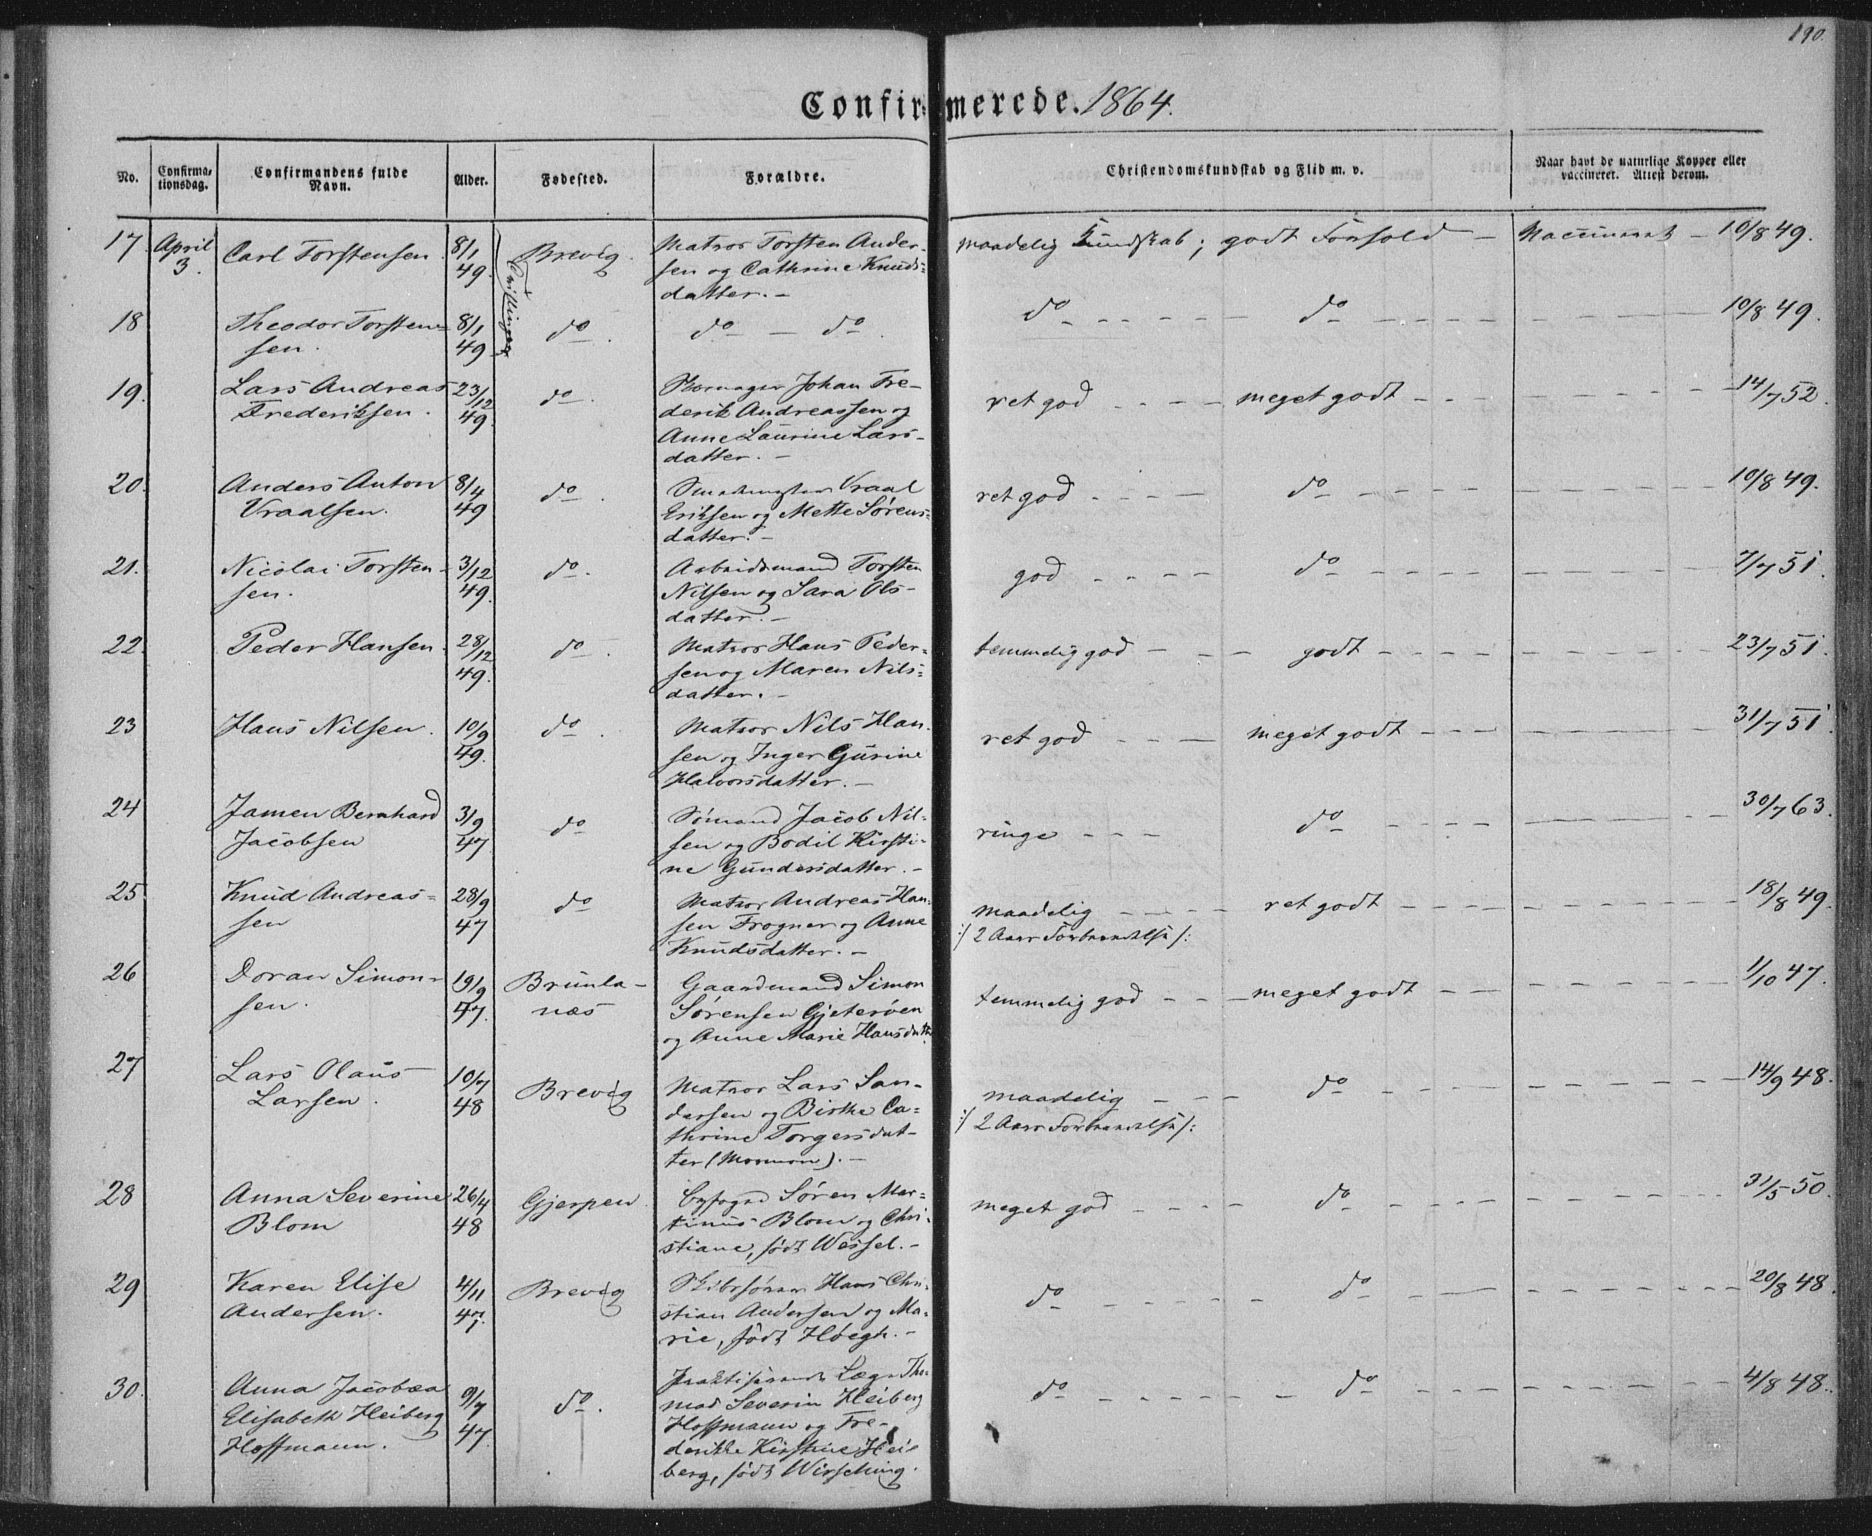 190.
Confirmerede. 1864.
No.
Confirma-
tionsdag.
Confirmandens fulde
Navn.
Alder.
Fødested.
Forældre.
Christendomskundskab og Flid m. v.
Naar havt de naturlige Kopper eller
vaccineret. Attest derom.
17. April 3. Carl Torstensen. 8/1 49. Brevig. Matros Torsten Ander-
sen og Cathrine Knuds-
datter. –
maadelig Kundskab; godt Forhold – Vaccineret – 10/8 49.
Tvillinger
18 Theodor Torsten-
sen. 8/1 49. do. do – do.
do – do – 10/8 49.
19. Lars Andreas
Frederiksen. 23/12 49. do. Johan Fre-
derik Andreassen og
Anne Laurine Lars-
datter. –
ret god – meget godt – 14/7 52.
20. Anders Anton
Vraalsen. 8/4 49 do. Vraal
Eriksen og Mette Sørens-
datter. –
ret god – do – 10/8 49.
21. Nicolai Torsten-
sen. 3/12 49. do. Arbeidsmand Torsten
Nilsen og Sara Ols-
datter. –
god – do – 7/7 51.
22. Peder Hansen. 28/12 49. do. Matros Hans Peder-
sen og Maren Nils-
datter. –
temmelig god – godt – 23/7 51.
23 Hans Nilsen. 10/9 49. do. Matros Nils Han-
sen og Inger Gurine
Halvorsdatter. –
ret god – meget godt – 31/7 51.
24 Jamen Bernhard
Jacobsen 3/9 47 do Sømand Jacob Nil-
sen og Bodil Kirsti-
ne Gundersdatter. –
ringe – do – 30/7 63.
25 Knud Andreas-
sen 28/9 47 do Matros Andreas Han-
sen Frogner og Anne
Knudsdatter. –
maadelig – ret godt – 18/8 49.
:/ 2 Aars Forberedelse /:
26 Doran Simon-
sen. 19/9 47. Brunla-
næs Gaardmand Simon
Sørensen Gjeterøen
og Anne Marie Hansdatt.
temmelig god – meget godt – 1/10 47.
27 Lars Olaus
Larsen. 10/7 48 Brevig Matros Lars San-
dersen og Birthe Ca-
thrine Torgersdat-
ter (Mormon). –
maadelig – do – 14/9 48.
:/ 2 Aars Forberedelse /:
28 Anna Severine
Blom 26/4 48 Gjerpen. Byfoged Søren Mar-
tinus Blom og Chri-
stiane, født Wessel. –
meget god – do – 31/5 50.
29 Karen Elise
Andersen. 4/11 47. Brevig Skibsfører Hans Chri-
stian Andersen og Ma-
rie, født Høegh. –
do – do – 20/8 48.
30. Anna Jacobæa
Elisabeth Heiberg
Hoffmann. 9/7 47. do. praktiserende Læge Tho-
mas Severin Heiberg
Hoffmann og Fre-
derikke Kirstine Hei-
berg, født Wirsching.
do – do – 4/8 48.